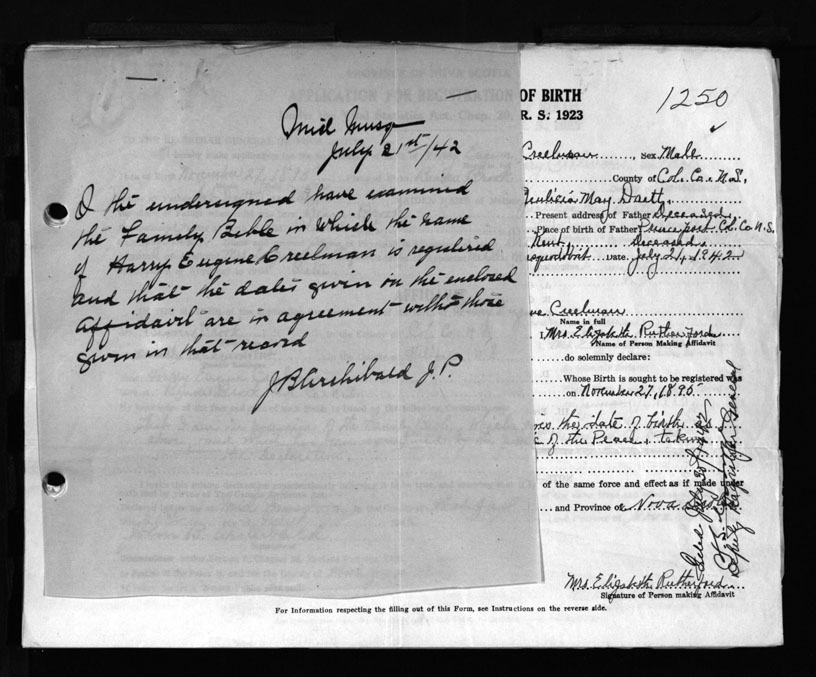 Mid Musq
July 21st/42
I the undersigned have examined
the Family Bible in which the name
of Harry Eugene Creelman is registered
and that the dates given on the enclosed
affidavit are in agreement with those
given in that record
J B Archibald J. P.
OF BIRTH
R. S. 1923
1250
Creelman, Sex Male
County of Col. Co. N.S.
May
Present address of Father deceased
Place of birth of Father Princeport Col. Co N.S.
deceased
Date July 21, 1942
Creelman
Name in full
I, Mrs. Elizabeth Rutherford
Name of Person Making Affidavit
do solemnly declare:
Whose Birth is sought to be registered was
on November 27, 1895
the date of birth as
of the Peace
of the same force and effect as if made under
and Province of Nova
Filed July 30, 1942
Deputy Registrar General
Mrs. Elizabeth Rutherford
Signature of Person making Affidavit
For Information respecting the filling out of this Form, see Instructions on the reverse side.